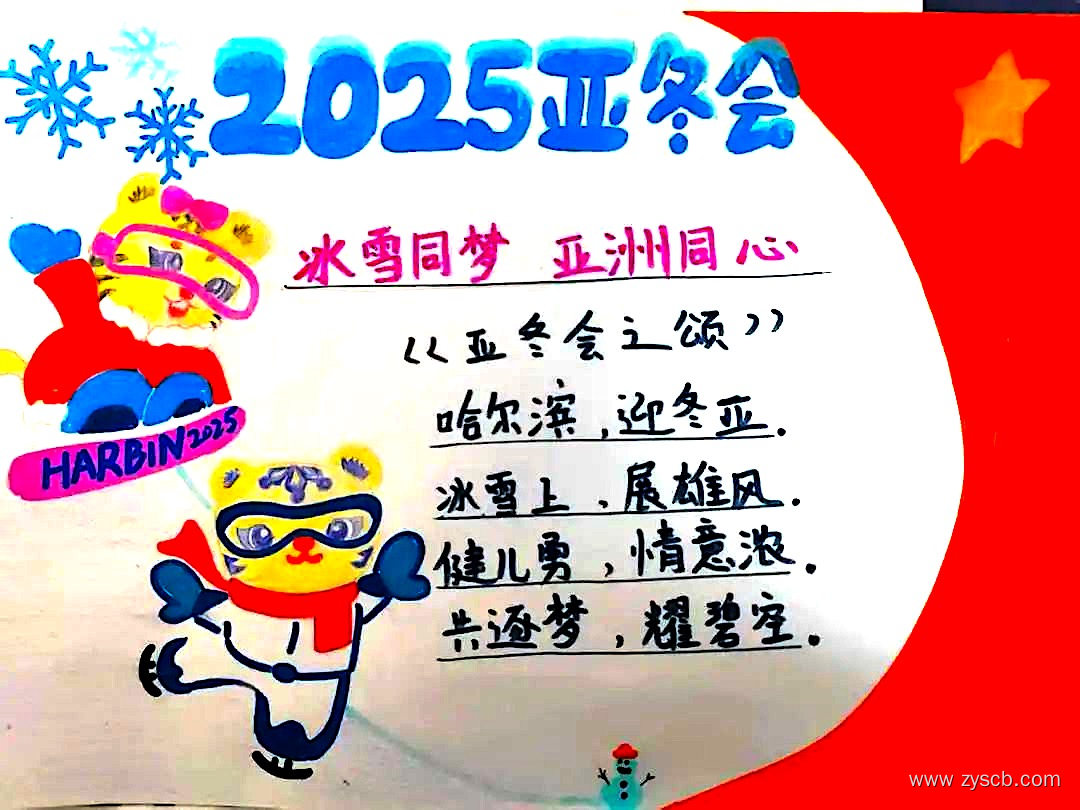 2025亚冬会
冰雪同梦 亚洲同心
《亚冬会之颂》
哈尔滨，迎冬亚.
冰雪上，展雄风.
健儿勇，情意浓.
共逐梦，耀碧空.
HARBIN 2025
www.zyscb.com